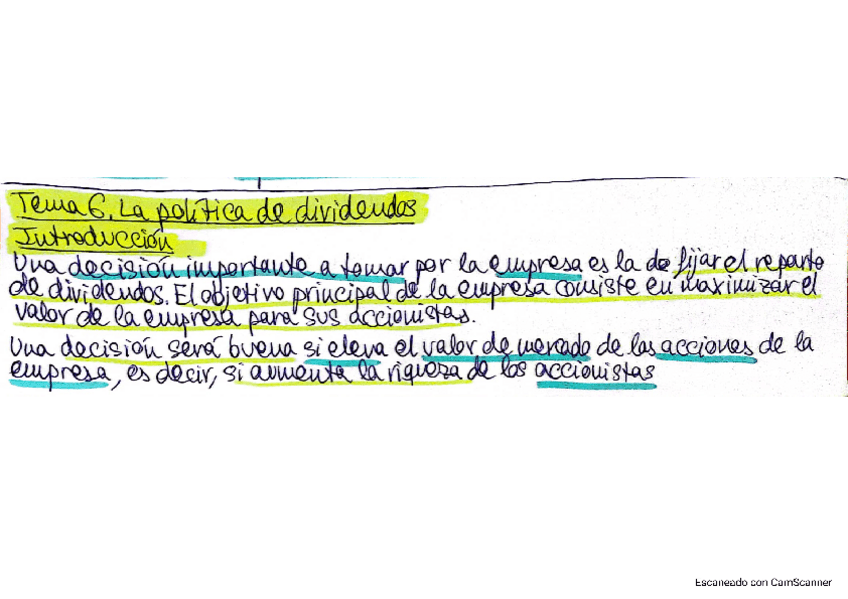 Tema 6. La política de dividendos
Introducción
Una decisión importante a tomar por la empresa es la de fijar el reparto
de dividendos. El objetivo principal de la empresa consiste en maximizar el
valor de la empresa para sus accionistas.
Una decisión será buena si eleva el valor de mercado de las acciones de la
empresa, es decir, si aumenta la riqueza de los accionistas
Escaneado con CamScanner